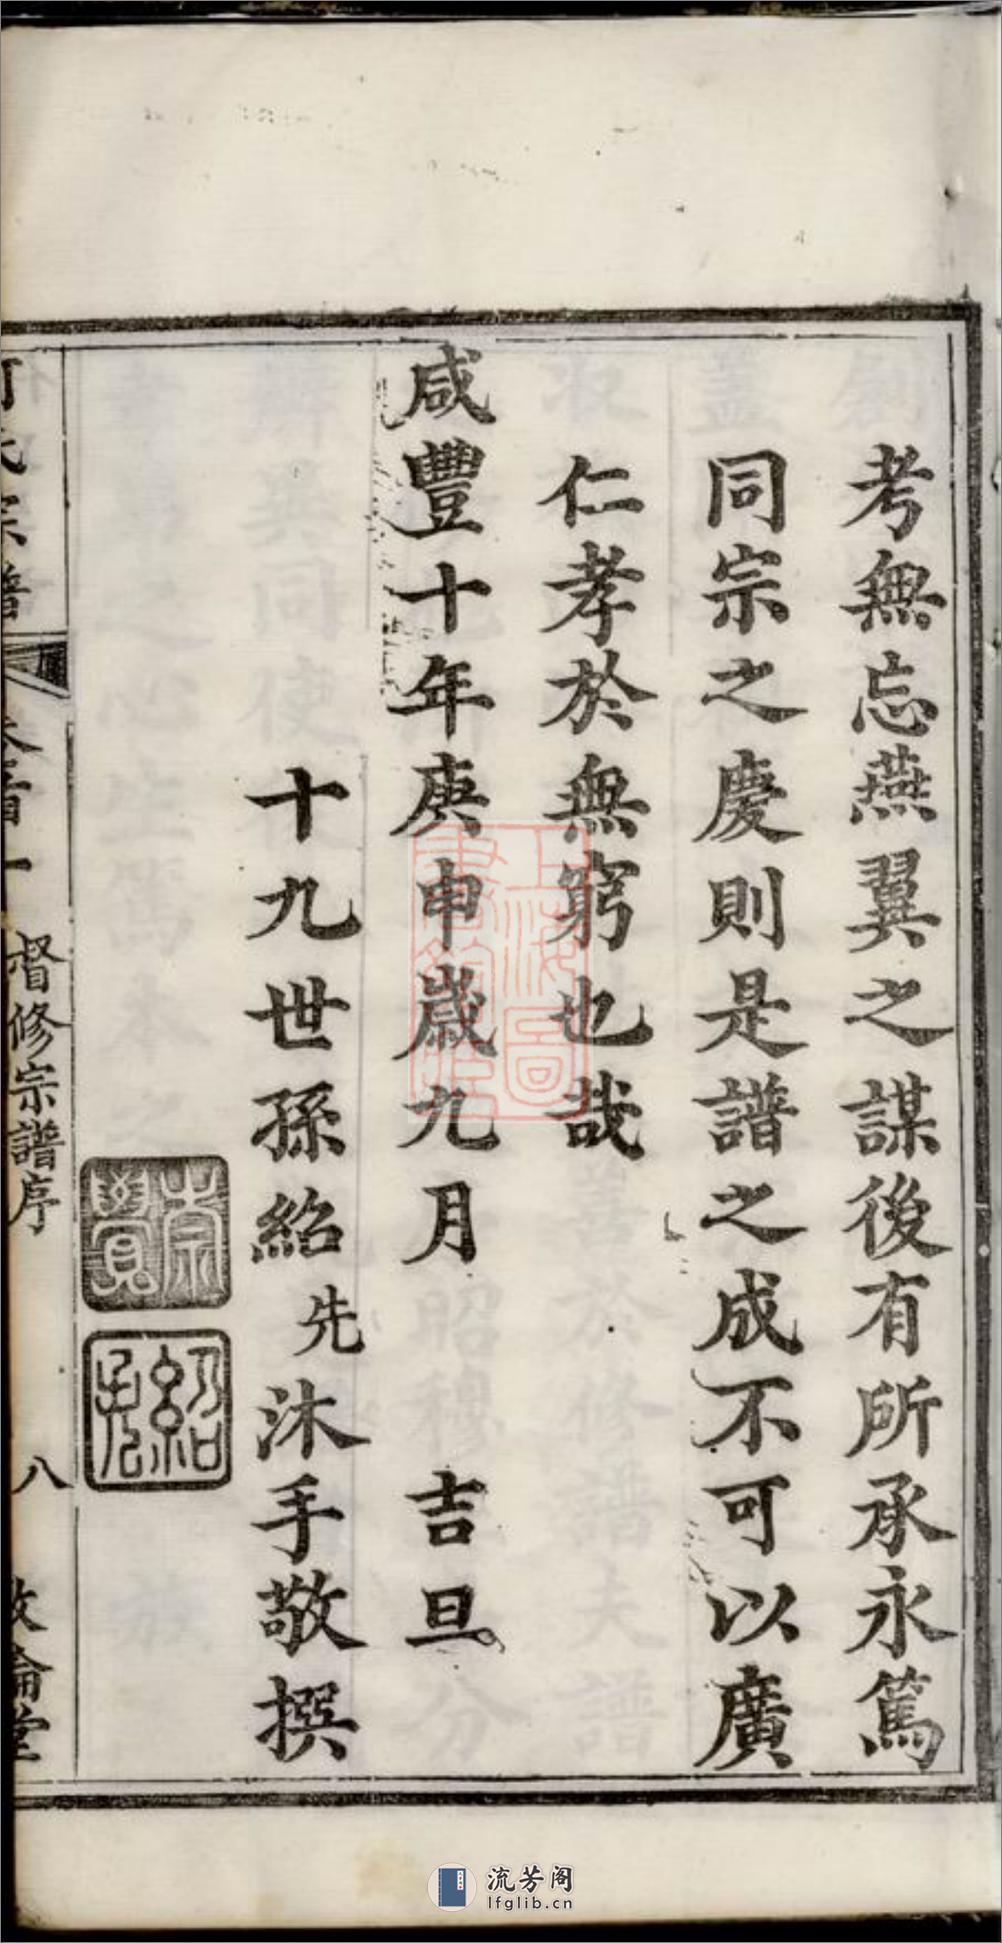 考無忘燕翼之謀後有所承永篤
同宗之慶則是譜之成不可以廣
仁孝於無窮也哉
咸豐十年庚申歲九月　吉旦
十九世孫紹先沐手敬撰
氏宗譜
卷首一　督修宗譜序　八　敦倫堂
上海圖書館藏
流芳阁
lfglib.cn